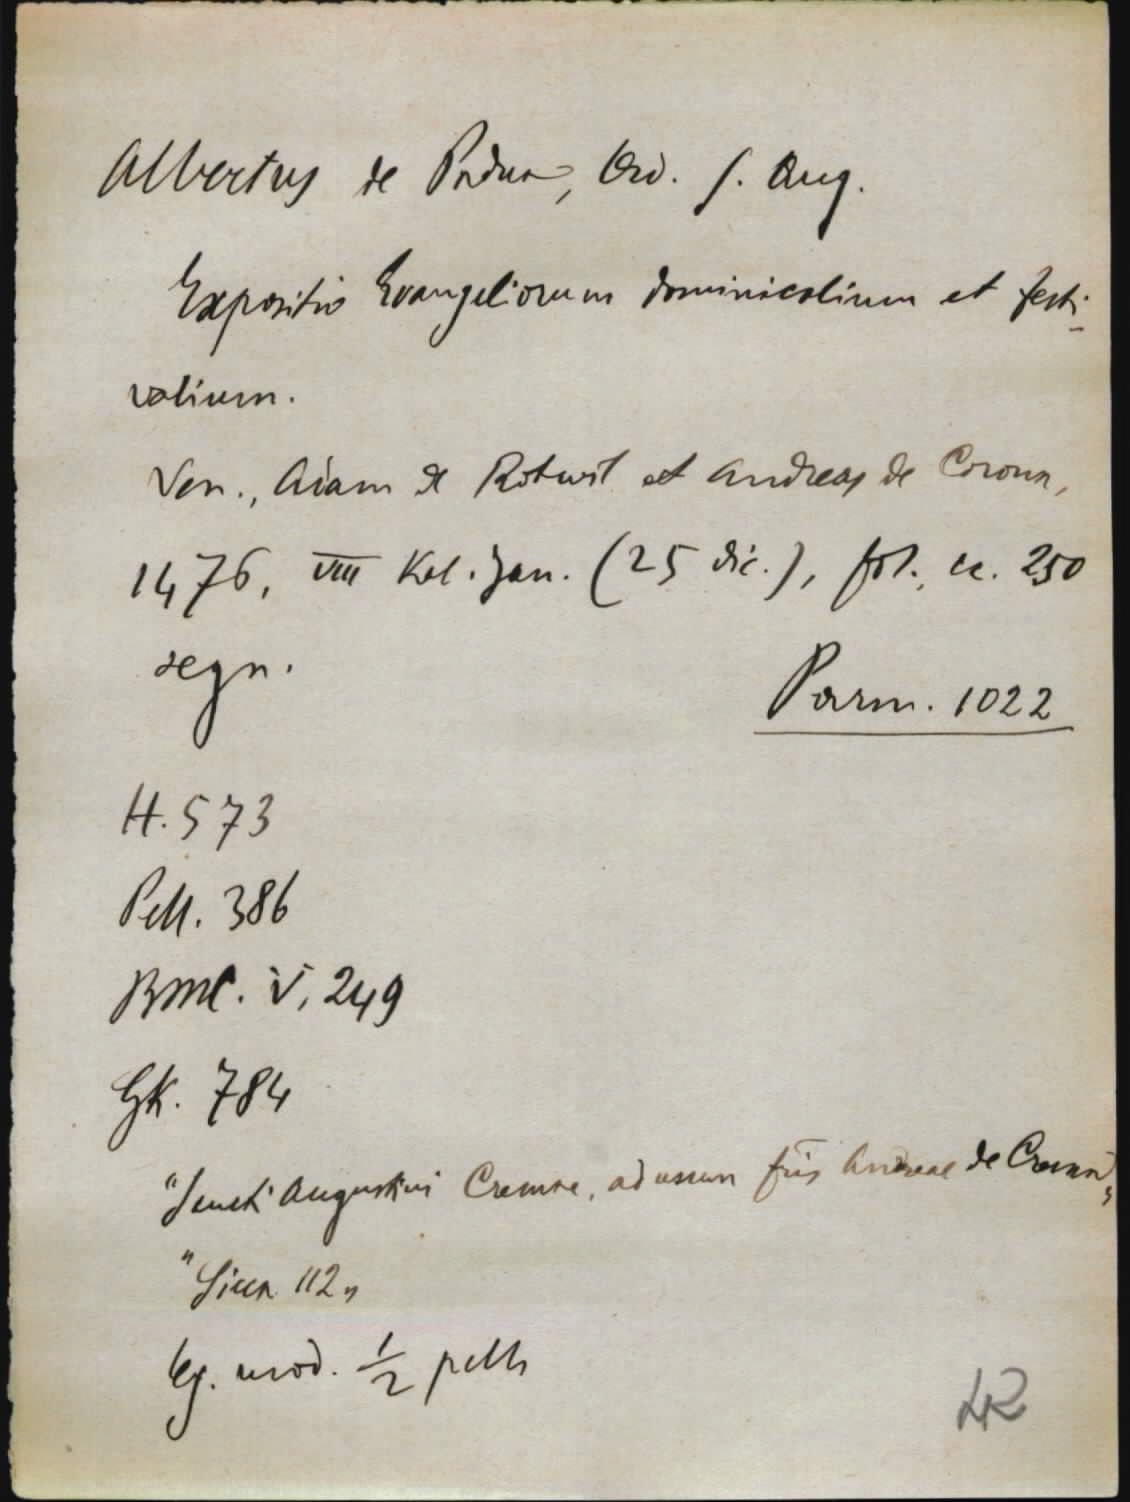 Albertus de Padua, Ord. S. Aug.
Expositio Evangeliorum dominicalium et festi-
valium.
Ven., Adam de Rotwil et Andreas de Corona,
1476, VIII Kal. Jan. (25 dic.), fol., cc. 250
segn.
Parm. 1022
H. 573
Pell. 386
BMC. V, 249
GK. 784
"Sancti Augustini Cremae, ad usum fris Andreae de Crema"
"Siecn 112"
leg. mod. ½ pelle
42